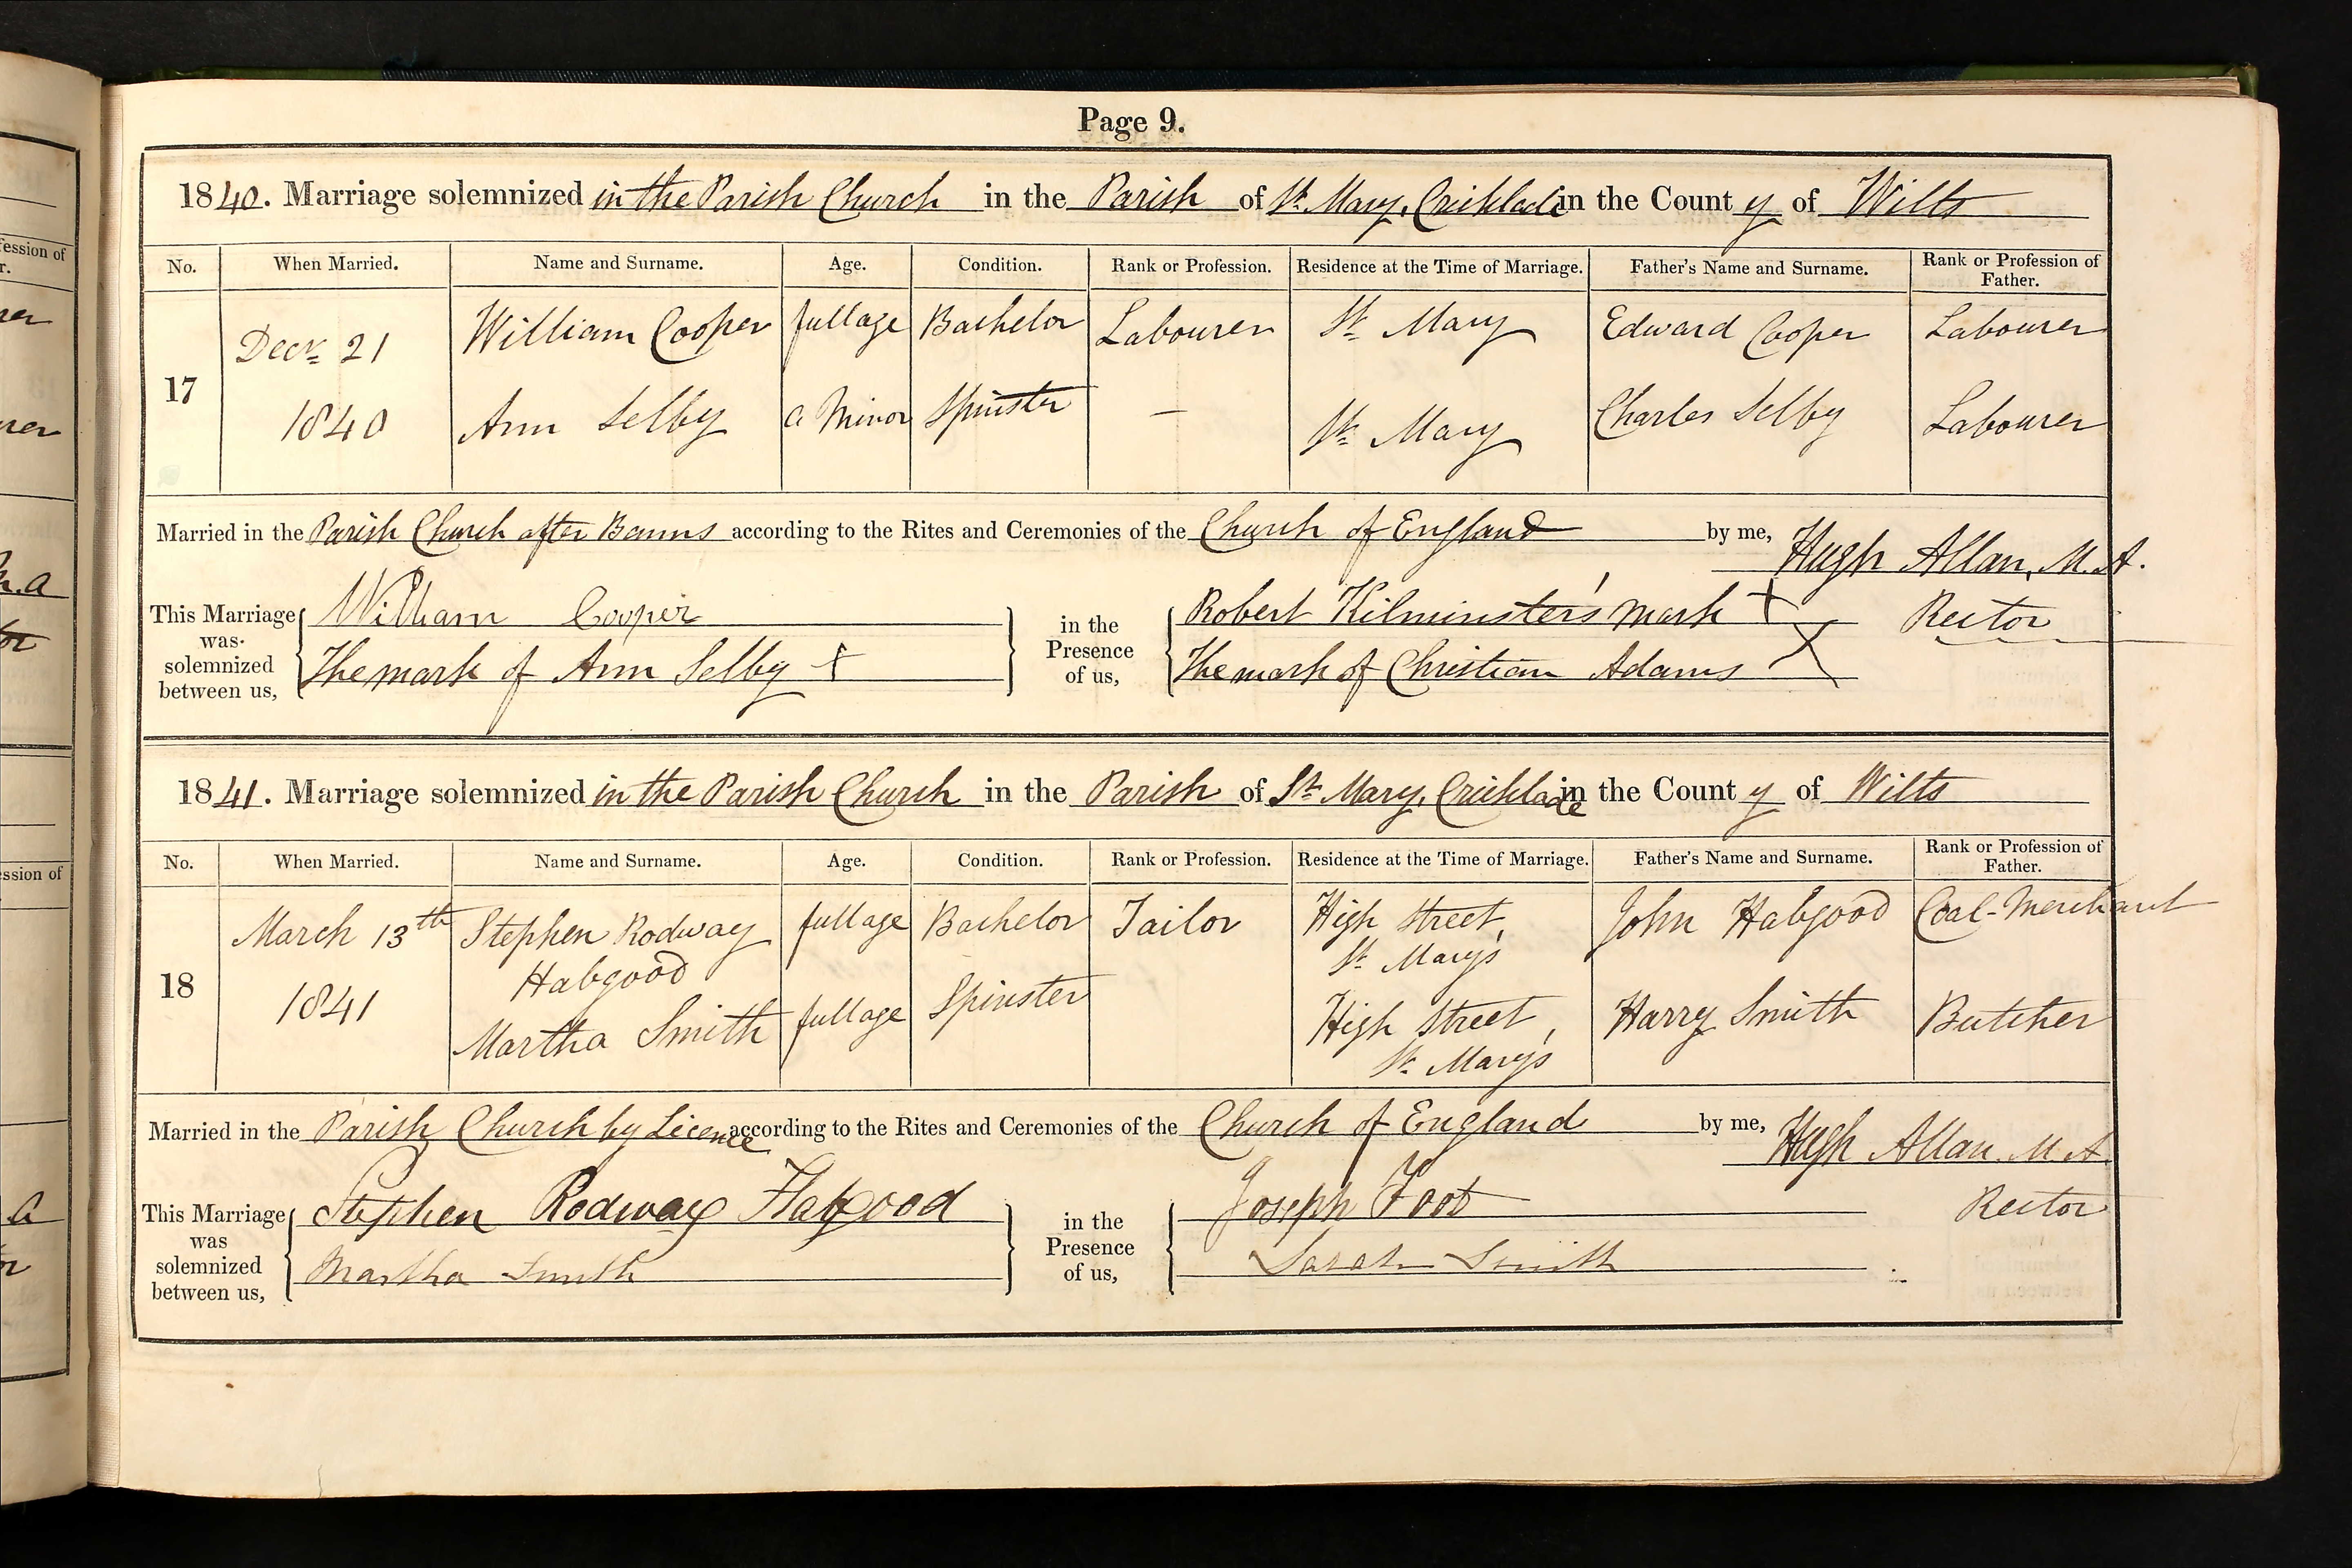 Page 9.
1840. Marriage solemnized in the Parish Church in the Parish of St. Mary, Cricklade in the County of Wilts
No. When Married. Name and Surname. Age. Condition. Rank or Profession. Residence at the Time of Marriage. Father's Name and Surname. Rank or Profession of Father.
17 Decr. 21 William Cooper full age Bachelor Labourer St. Mary Edward Cooper Labourer
1840 Ann Selby a Minor Spinster — St. Mary Charles Selby Labourer
Married in the Parish Church after Banns according to the Rites and Ceremonies of the Church of England by me, Hugh Allan, M.A.
Rector
This Marriage was solemnized between us,
William Cooper
The mark of Ann Selby +
in the Presence of us,
Robert Kilminster's mark +
The mark of Christian Adams X
1841. Marriage solemnized in the Parish Church in the Parish of St. Mary, Cricklade in the County of Wilts
No. When Married. Name and Surname. Age. Condition. Rank or Profession. Residence at the Time of Marriage. Father's Name and Surname. Rank or Profession of Father.
18 March 13th Stephen Rodway Habgood full age Bachelor Tailor High Street, St. Mary's John Habgood Coal-Merchant
1841 Martha Smith full age Spinster High Street, St. Mary's Harry Smith Butcher
Married in the Parish Church by Licence according to the Rites and Ceremonies of the Church of England by me, Hugh Allan M.A.
Rector
This Marriage was solemnized between us,
Stephen Rodway Habgood
Martha Smith
in the Presence of us,
Joseph Foot
Sarah Smith